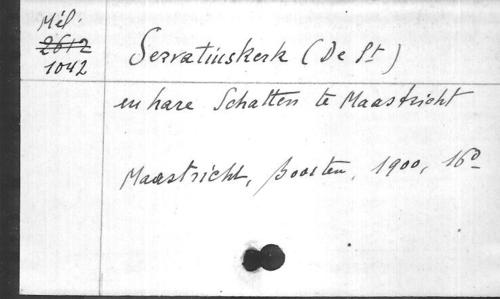 Mél.
2612
1042
Servatiuskerk (De St)
en hare Schatten te Maastricht
Maastricht, Boosten, 1900, 16o